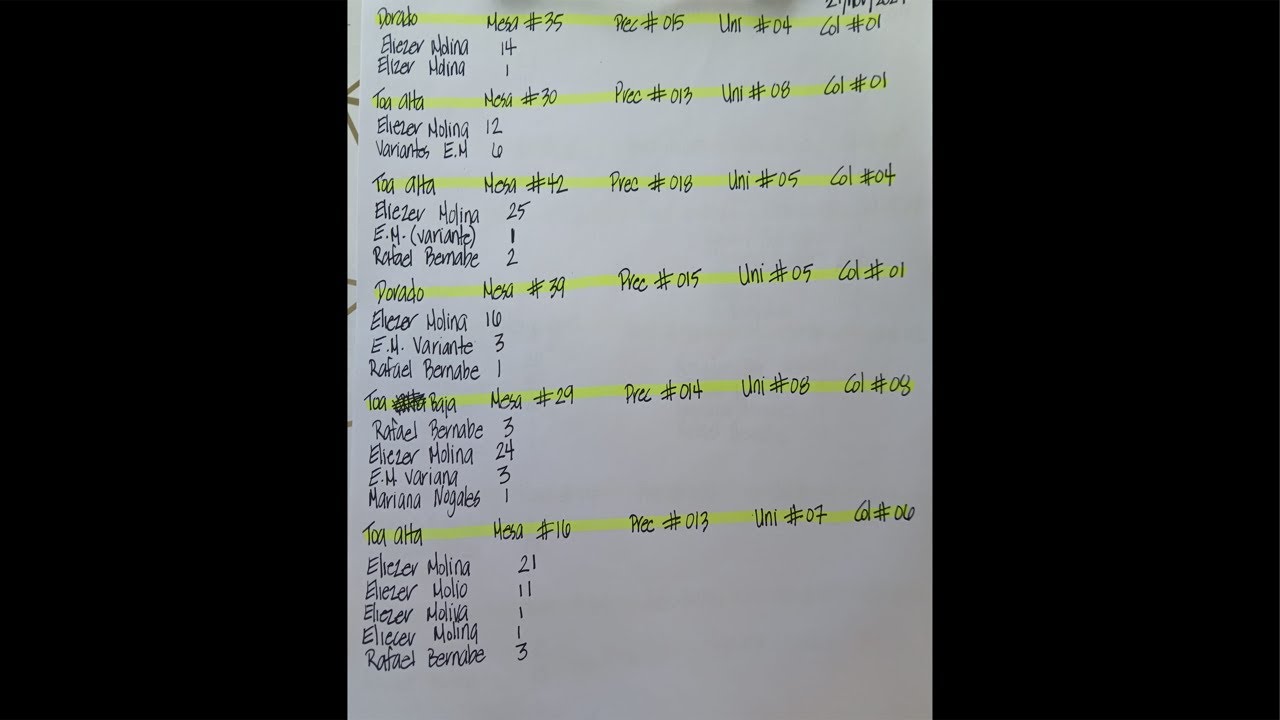 21/nov/2024
Dorado Mesa #35 Prec #015 Uni #04 Col #01
Eliezer Molina 14
Elizer Molina 1
Toa Alta Mesa #30 Prec #013 Uni #08 Col #01
Eliezer Molina 12
Variantes E.M 6
Toa Alta Mesa #42 Prec #018 Uni #05 Col #04
Eliezer Molina 25
E.M. (variante) 1
Rafael Bernabe 2
Dorado Mesa #39 Prec #015 Uni #05 Col #01
Eliezer Molina 16
E.M. Variante 3
Rafael Bernabe 1
Toa Baja Mesa #29 Prec #014 Uni #08 Col #08
Rafael Bernabe 3
Eliezer Molina 24
E.M Variana 3
Mariana Nogales 1
Toa Alta Mesa #16 Prec #013 Uni #07 Col #06
Eliezer Molina 21
Eliezer Molio 11
Eliezer Moliva 1
Eliecer Molina 1
Rafael Bernabe 3